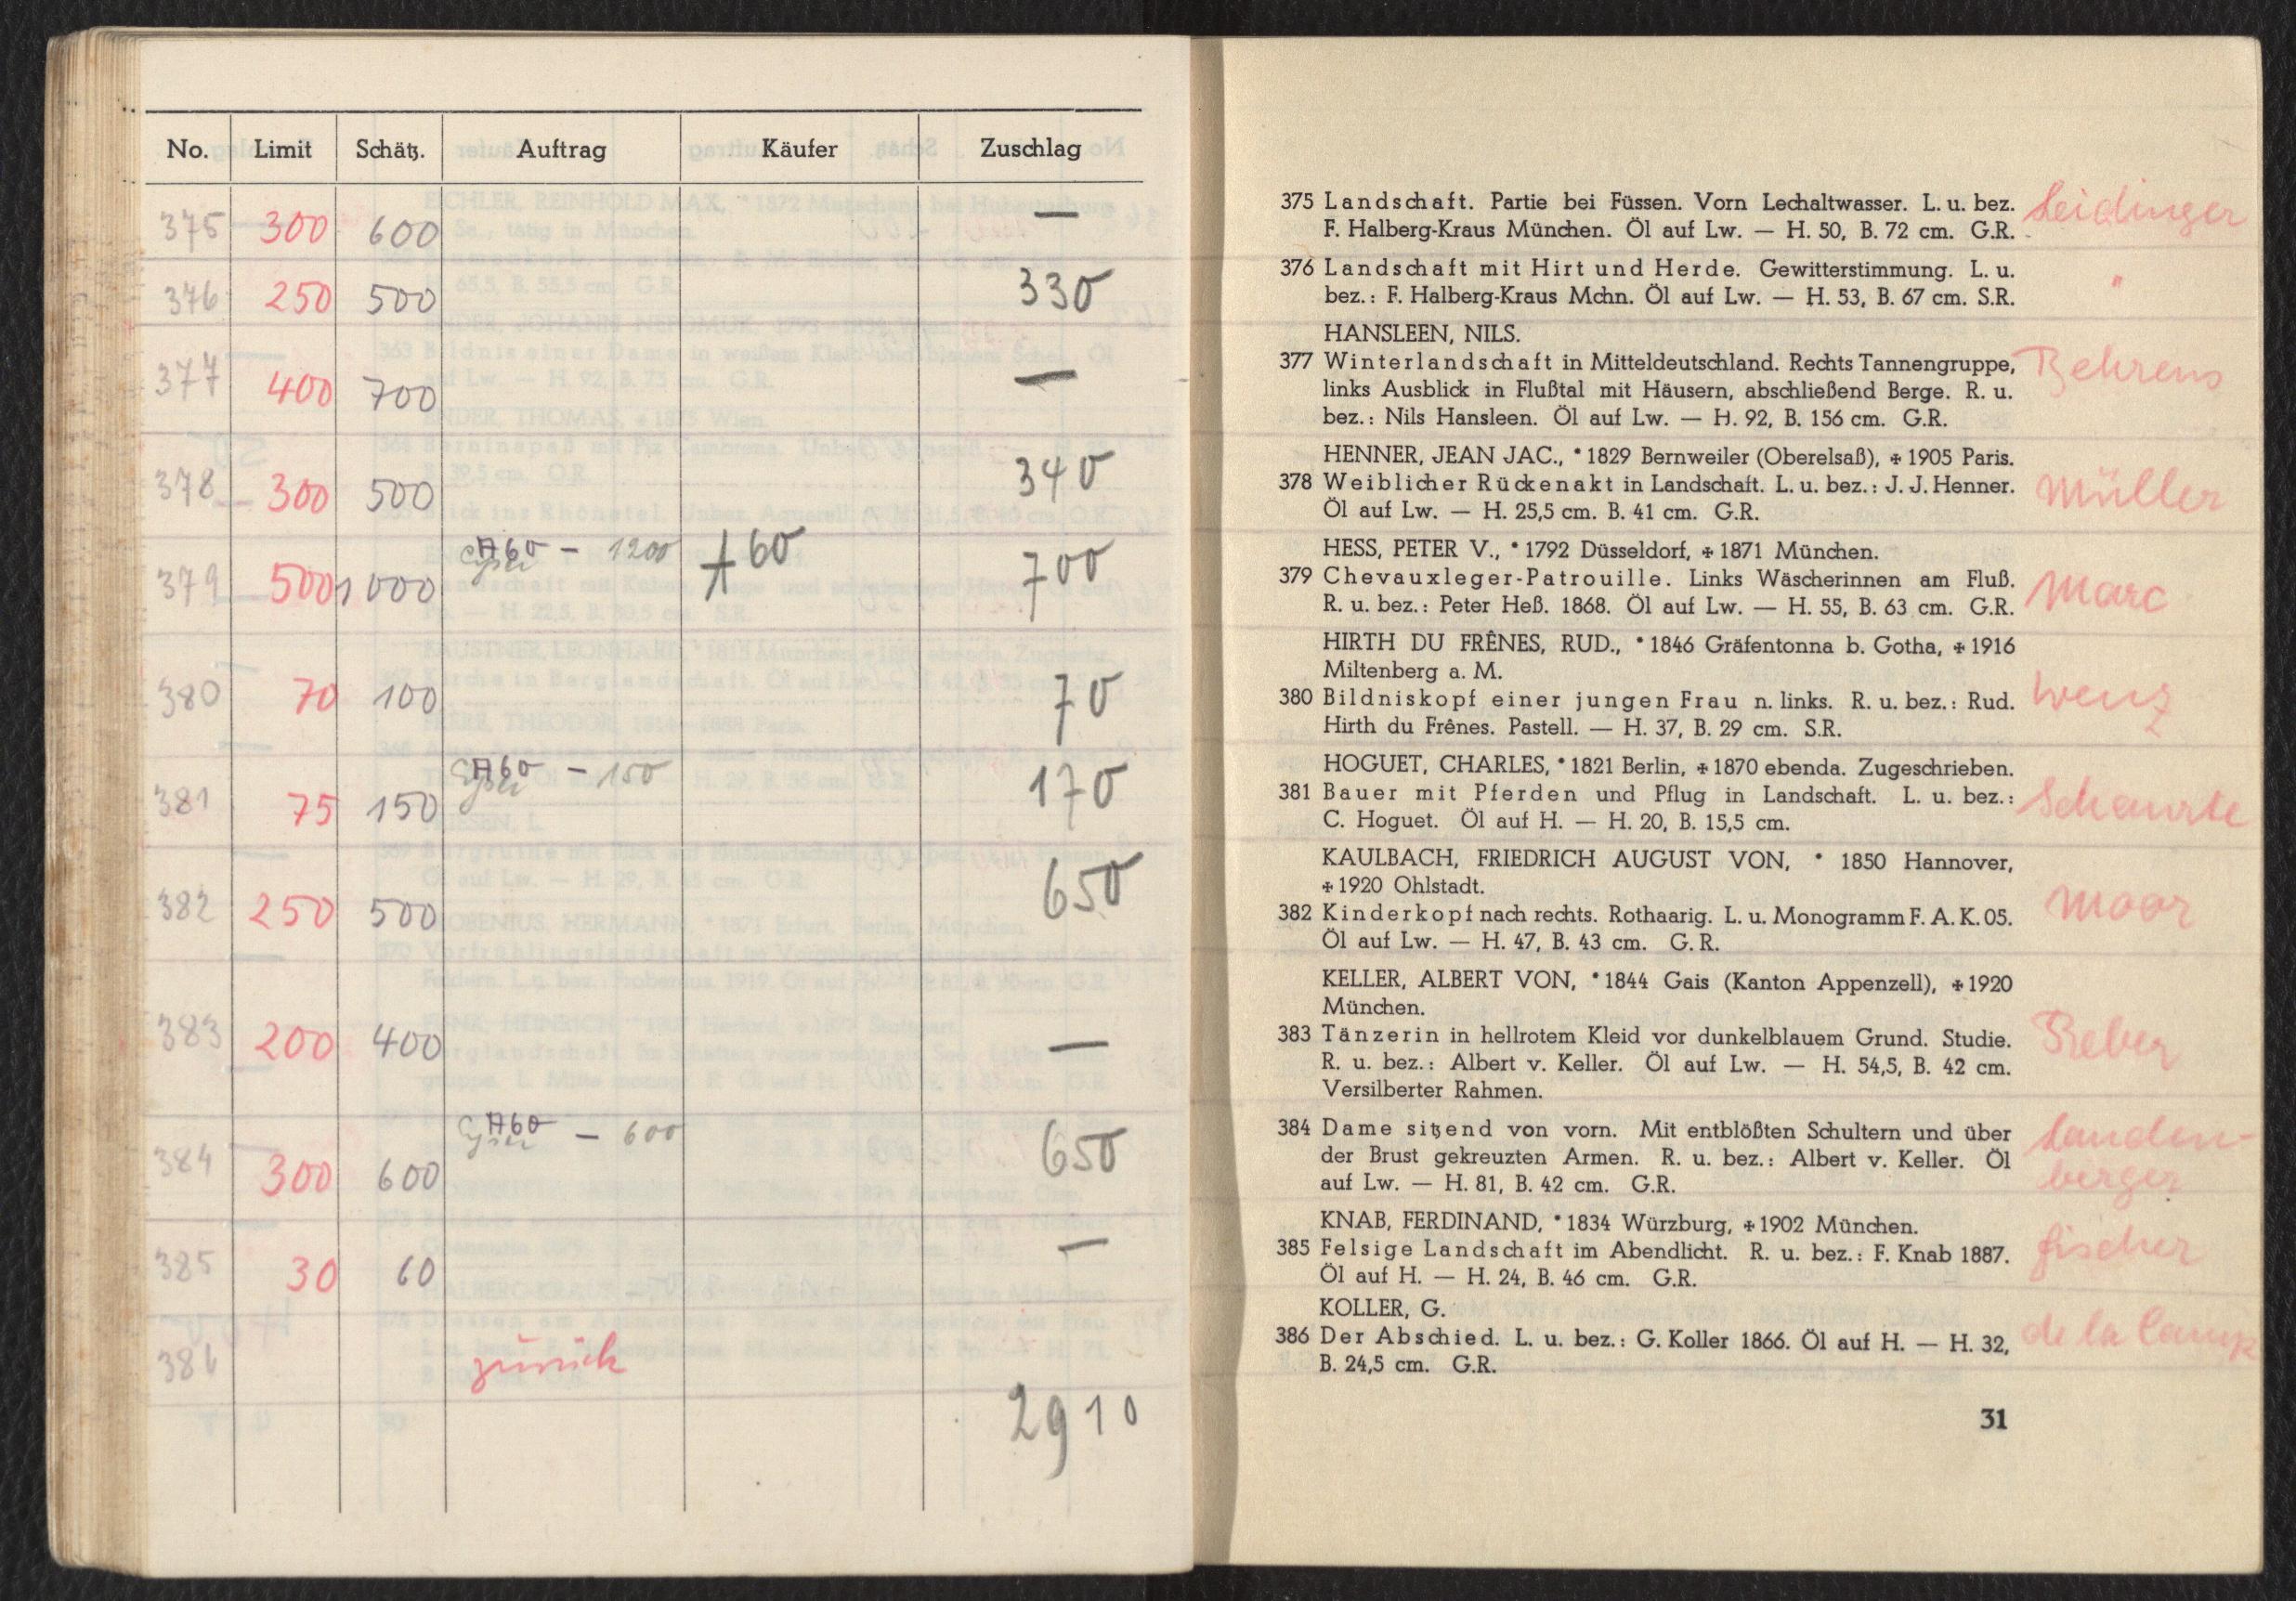 No. Limit Schätz. Auftrag Käufer Zuschlag
375 300 600 —
376 250 500 330
377 400 700 —
378 300 500 340
379 500 1000 A60 - 1200 A60 700
380 70 100 70
381 75 150 A60 - 150 170
382 250 500 650
383 200 400 —
384 300 600 A60 - 600 650
385 30 60 —
386 zurück
2910
375 Landschaft. Partie bei Füssen. Vorn Lechaltwasser. L. u. bez. Leidinger
F. Halberg-Kraus München. Öl auf Lw. — H. 50, B. 72 cm. G.R.
376 Landschaft mit Hirt und Herde. Gewitterstimmung. L. u. "
bez.: F. Halberg-Kraus Mchn. Öl auf Lw. — H. 53, B. 67 cm. S.R.
HANSLEEN, NILS.
377 Winterlandschaft in Mitteldeutschland. Rechts Tannengruppe, Behrens
links Ausblick in Flußtal mit Häusern, abschließend Berge. R. u.
bez.: Nils Hansleen. Öl auf Lw. — H. 92, B. 156 cm. G.R.
HENNER, JEAN JAC., * 1829 Bernweiler (Oberelsaß), ✠ 1905 Paris.
378 Weiblicher Rückenakt in Landschaft. L. u. bez.: J. J. Henner. Müller
Öl auf Lw. — H. 25,5 cm. B. 41 cm. G.R.
HESS, PETER V., * 1792 Düsseldorf, ✠ 1871 München.
379 Chevauxleger-Patrouille. Links Wäscherinnen am Fluß. Marc
R. u. bez.: Peter Heß. 1868. Öl auf Lw. — H. 55, B. 63 cm. G.R.
HIRTH DU FRÊNES, RUD., * 1846 Gräfentonna b. Gotha, ✠ 1916
Miltenberg a. M.
380 Bildniskopf einer jungen Frau n. links. R. u. bez.: Rud. Wenz
Hirth du Frênes. Pastell. — H. 37, B. 29 cm. S.R.
HOGUET, CHARLES, * 1821 Berlin, ✠ 1870 ebenda. Zugeschrieben.
381 Bauer mit Pferden und Pflug in Landschaft. L. u. bez.:
C. Hoguet. Öl auf H. — H. 20, B. 15,5 cm.
KAULBACH, FRIEDRICH AUGUST VON, * 1850 Hannover,
✠ 1920 Ohlstadt.
382 Kinderkopf nach rechts. Rothaarig. L. u. Monogramm F. A. K. 05. Moor
Öl auf Lw. — H. 47, B. 43 cm. G. R.
KELLER, ALBERT VON, * 1844 Gais (Kanton Appenzell), ✠ 1920
München.
383 Tänzerin in hellrotem Kleid vor dunkelblauem Grund. Studie. Reber
R. u. bez.: Albert v. Keller. Öl auf Lw. — H. 54,5, B. 42 cm.
Versilberter Rahmen.
384 Dame sitzend von vorn. Mit entblößten Schultern und über Landen-
der Brust gekreuzten Armen. R. u. bez.: Albert v. Keller. Öl berger
auf Lw. — H. 81, B. 42 cm. G.R.
KNAB, FERDINAND, * 1834 Würzburg, ✠ 1902 München.
385 Felsige Landschaft im Abendlicht. R. u. bez.: F. Knab 1887. Fischer
Öl auf H. — H. 24, B. 46 cm. G.R.
KOLLER, G.
386 Der Abschied. L. u. bez.: G. Koller 1866. Öl auf H. — H. 32, de la Camp
B. 24,5 cm. G.R.
31